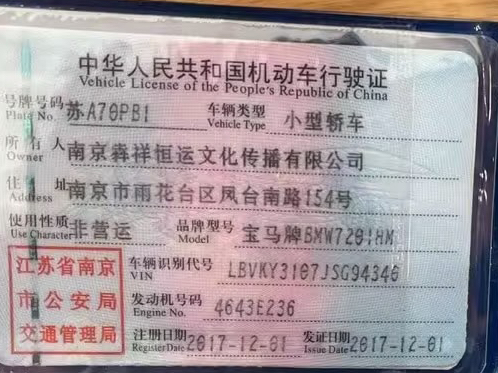 中华人民共和国机动车行驶证
Vehicle License of the People's Republic of China
号牌号码 苏A70PB1 车辆类型 小型轿车
Plate No. Vehicle Type
所有人 南京犇祥恒运文化传播有限公司
Owner
住址 南京市雨花台区凤台南路154号
Address
使用性质 非营运 品牌型号 宝马牌BMW7201HM
Use Character Model
江苏省南京市公安局交通管理局
车辆识别代号 LBVKY3107JSG94346
VIN
发动机号码 4643E236
Engine No.
注册日期 2017-12-01 发证日期 2017-12-01
Register Date Issue Date